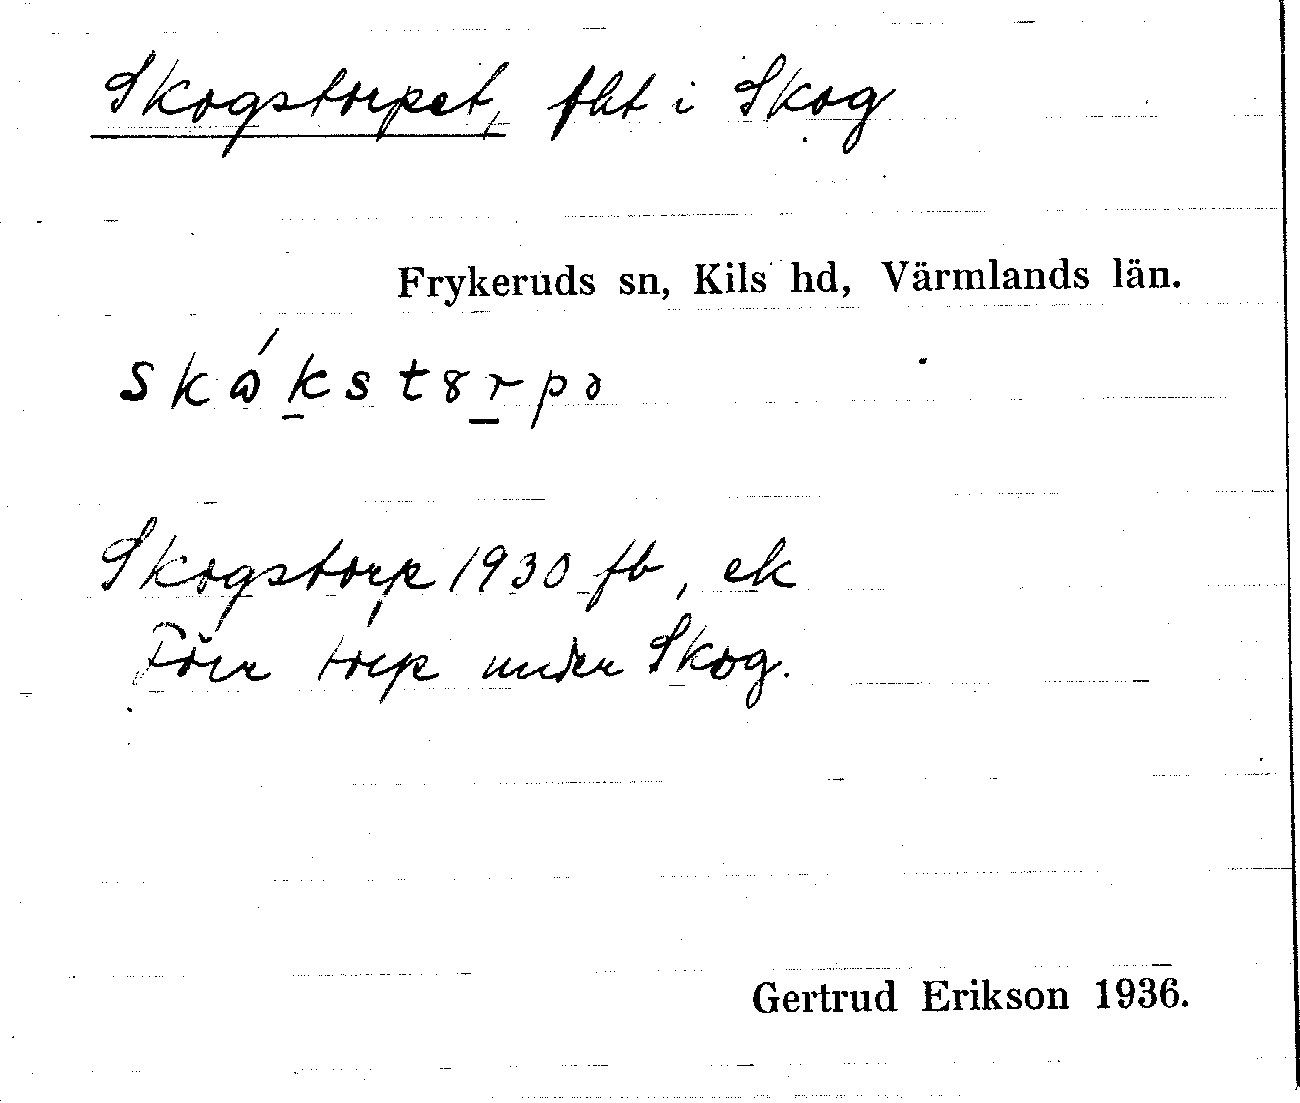 Skogstorpet, fht i Skog
Frykeruds sn, Kils hd, Värmlands län.
Skogstorp 1930 fb, ek
Förr torp under Skog.
Gertrud Erikson 1936.